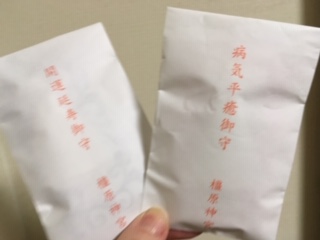 開運延寿御守
橿原神宮
病気平癒御守
橿原神宮